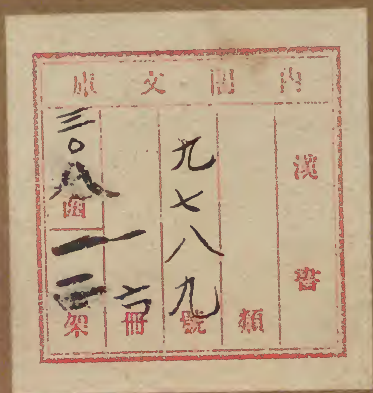 内閣文庫
漢書
類
九七八九號
六冊
三〇八函
架